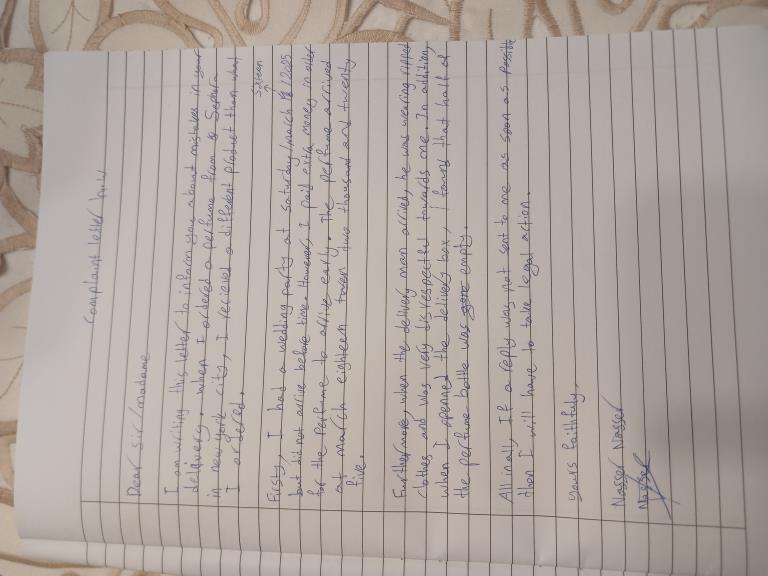 Complaint letter
Dear sir/madame
I am writing this letter to inform you about mistakes in your
delivery, when I ordered a perfume from Sephora
in new york city, I recieved a different product than what
I ordered.
Sixteen
Firstly, I had a wedding party at saturday/march /2025
but did not arrive before time. However, I paid extra money in order
for the perfume to arrive early. The perfume arrived
at march eighteen two thousand and twenty
five.
Furthermore, when the delivery man arrived, he was wearing ripped
clothes and was very disrespectful towards me. In addition,
when I openned the delivery box, I found that half of
the perfume bottle was empty.
All in all, If a reply was not sent to me as soon as possible
then I will have to take legal action.
yours faithfuly,
Nasser Nasser
Nasser